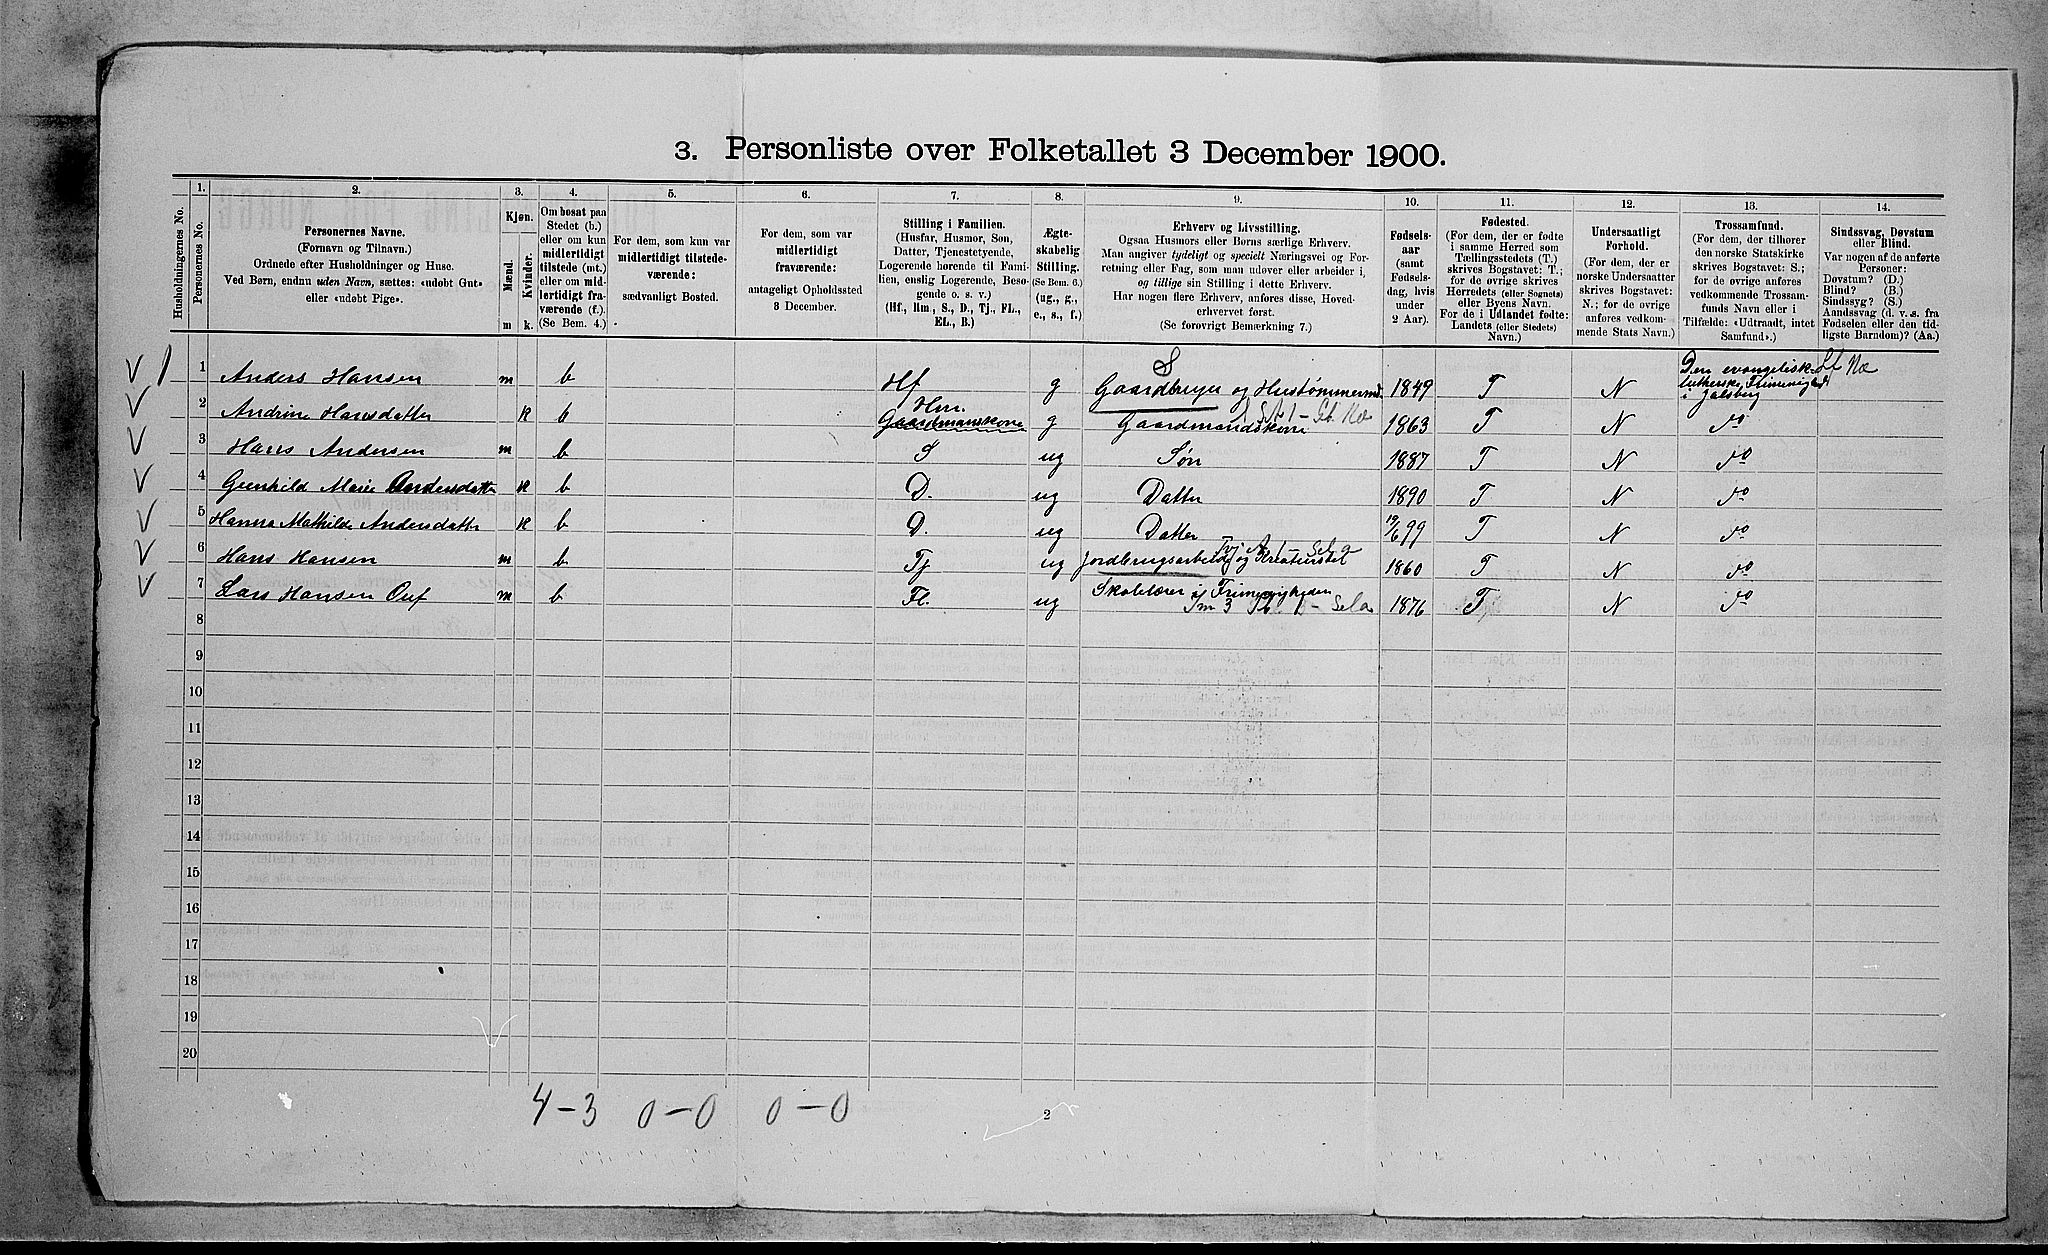 3. Personliste over Folketallet 3 December 1900.
Husholdningernes No.
1. Personernes No.
2. Personernes Navne.
(Fornavn og Tilnavn.)
Ordnede efter Husholdninger og Huse.
Ved Børn, endnu uden Navn, sættes: «udøbt Gut»
eller «udøbt Pige».
3. Kjøn.
Mænd. Kvinder.
m k.
4.
Om bosat paa
Stedet (b.)
eller om kun
midlertidigt
tilstede (mt.)
eller om mid-
lertidigt fra-
værende (f.).
(Se Bem. 4.)
5.
For dem, som kun var
midlertidigt tilstede-
værende:
sædvanligt Bosted.
6.
For dem, som var
midlertidigt
fraværende:
antageligt Opholdssted
3 December.
7.
Stilling i Familien.
(Husfar, Husmor, Søn,
Datter, Tjenestetyende,
Logerende hørende til Fami-
lien, enslig Logerende, Besø-
gende o. s. v.)
(Hf, Hm, S., D., Tj., FL.,
EL., B.)
8.
Ægte-
skabelig
Stilling.
(Se Bem. 6.)
(ug., g.,
e., s., f.)
9.
Erhverv og Livsstilling.
Ogsaa Husmors eller Børns særlige Erhverv.
Man angiver tydeligt og specielt Næringsvei og For-
retning eller Fag, som man udøver eller arbeider i,
og tillige sin Stilling i dette Erhverv.
Har nogen flere Erhverv, anføres disse, Hoved-
erhvervet først.
(Se forøvrigt Bemærkning 7.)
10.
Fødsels-
aar
(samt
Fødsels-
dag, hvis
under
2 Aar).
11.
Fødested.
(For dem, der er fødte
i samme Herred som
Tællingsstedets (T.)
skrives Bogstavet: T.;
for de øvrige skrives
Herredets (eller Sognets)
eller Byens Navn.
For de i Udlandet fødte:
Landets (eller Stedets)
Navn.)
12.
Undersaatligt
Forhold.
(For dem, der er
norske Undersaatter
skrives Bogstavet:
N.; for de øvrige
anføres vedkom-
mende Stats Navn.)
13.
Trossamfund.
(For dem, der tilhører
den norske Statskirke
skrives Bogstavet: S.;
for de øvrige anføres
vedkommende Trossam-
funds Navn eller i
Tilfælde: «Udtraadt, intet
Samfund».)
14.
Sindssvag, Døvstum
eller Blind.
Var nogen af de anførte
Personer:
Døvstum? (D.)
Blind? (B.)
Sindssyg? (S.)
Aandssvag (d. v. s. fra
Fødselen eller den tid-
ligste Barndom)? (Aa.)
1 Anders Hansen m b Hf g Gaardbruger og Hustømmermd. 1849 T N Den evangelisk lutherske Frimenighed i Jalsberg
2 Andrine Hansdatter K b Hm. Gaardmanskone g Gaardmandskone 1863 T N do
3 Hans Andersen m b S ug Søn 1887 T N do
4 Gunhild Marie Andersdatter K b D. ug Datter 1890 T N do
5 Hanna Mathilde Andersdatter K b D. ug Datter 19/6 99 T N do
6 Hans Hansen m b Tj ug Jordbrugsarbeide og Kreaturstel 1860 T N do
7 Lars Hansen Ouf m b Fl. ug Skolelærer i Frimenigheden 1876 T N do
8
9
10
11
12
13
14
15
16
17
18
19
20
4 - 3 0 - 0 0 - 0
2